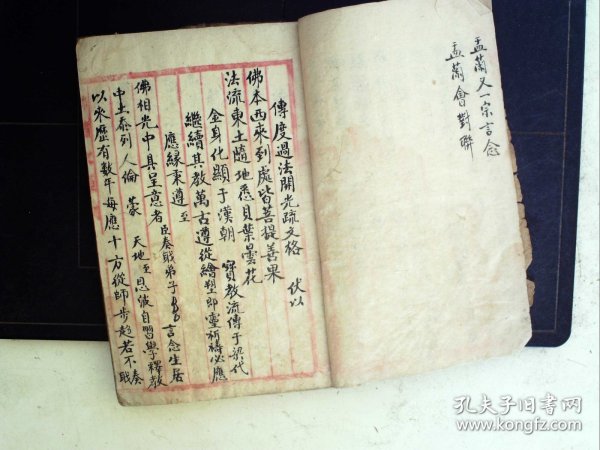 盂蘭又一宗言念
盂蘭會對聯
傳度過法開光疏文格 伏以
佛本西來到處皆菩提善果
法流東土隨地悉貝葉曇花
金身化顯于漢朝 寶教流傳于梁代
繼續其教萬古遵從繪塑即靈祈禱必應
應緣秉遵 至
佛相光中具呈意者臣奏戠弟子 言念生居
中土忝列人倫 蒙 天地至恩 自習學釋教
以來歷有數年每應十方從師步趋若不奏戠
孔夫子旧书网
www.kongfz.com